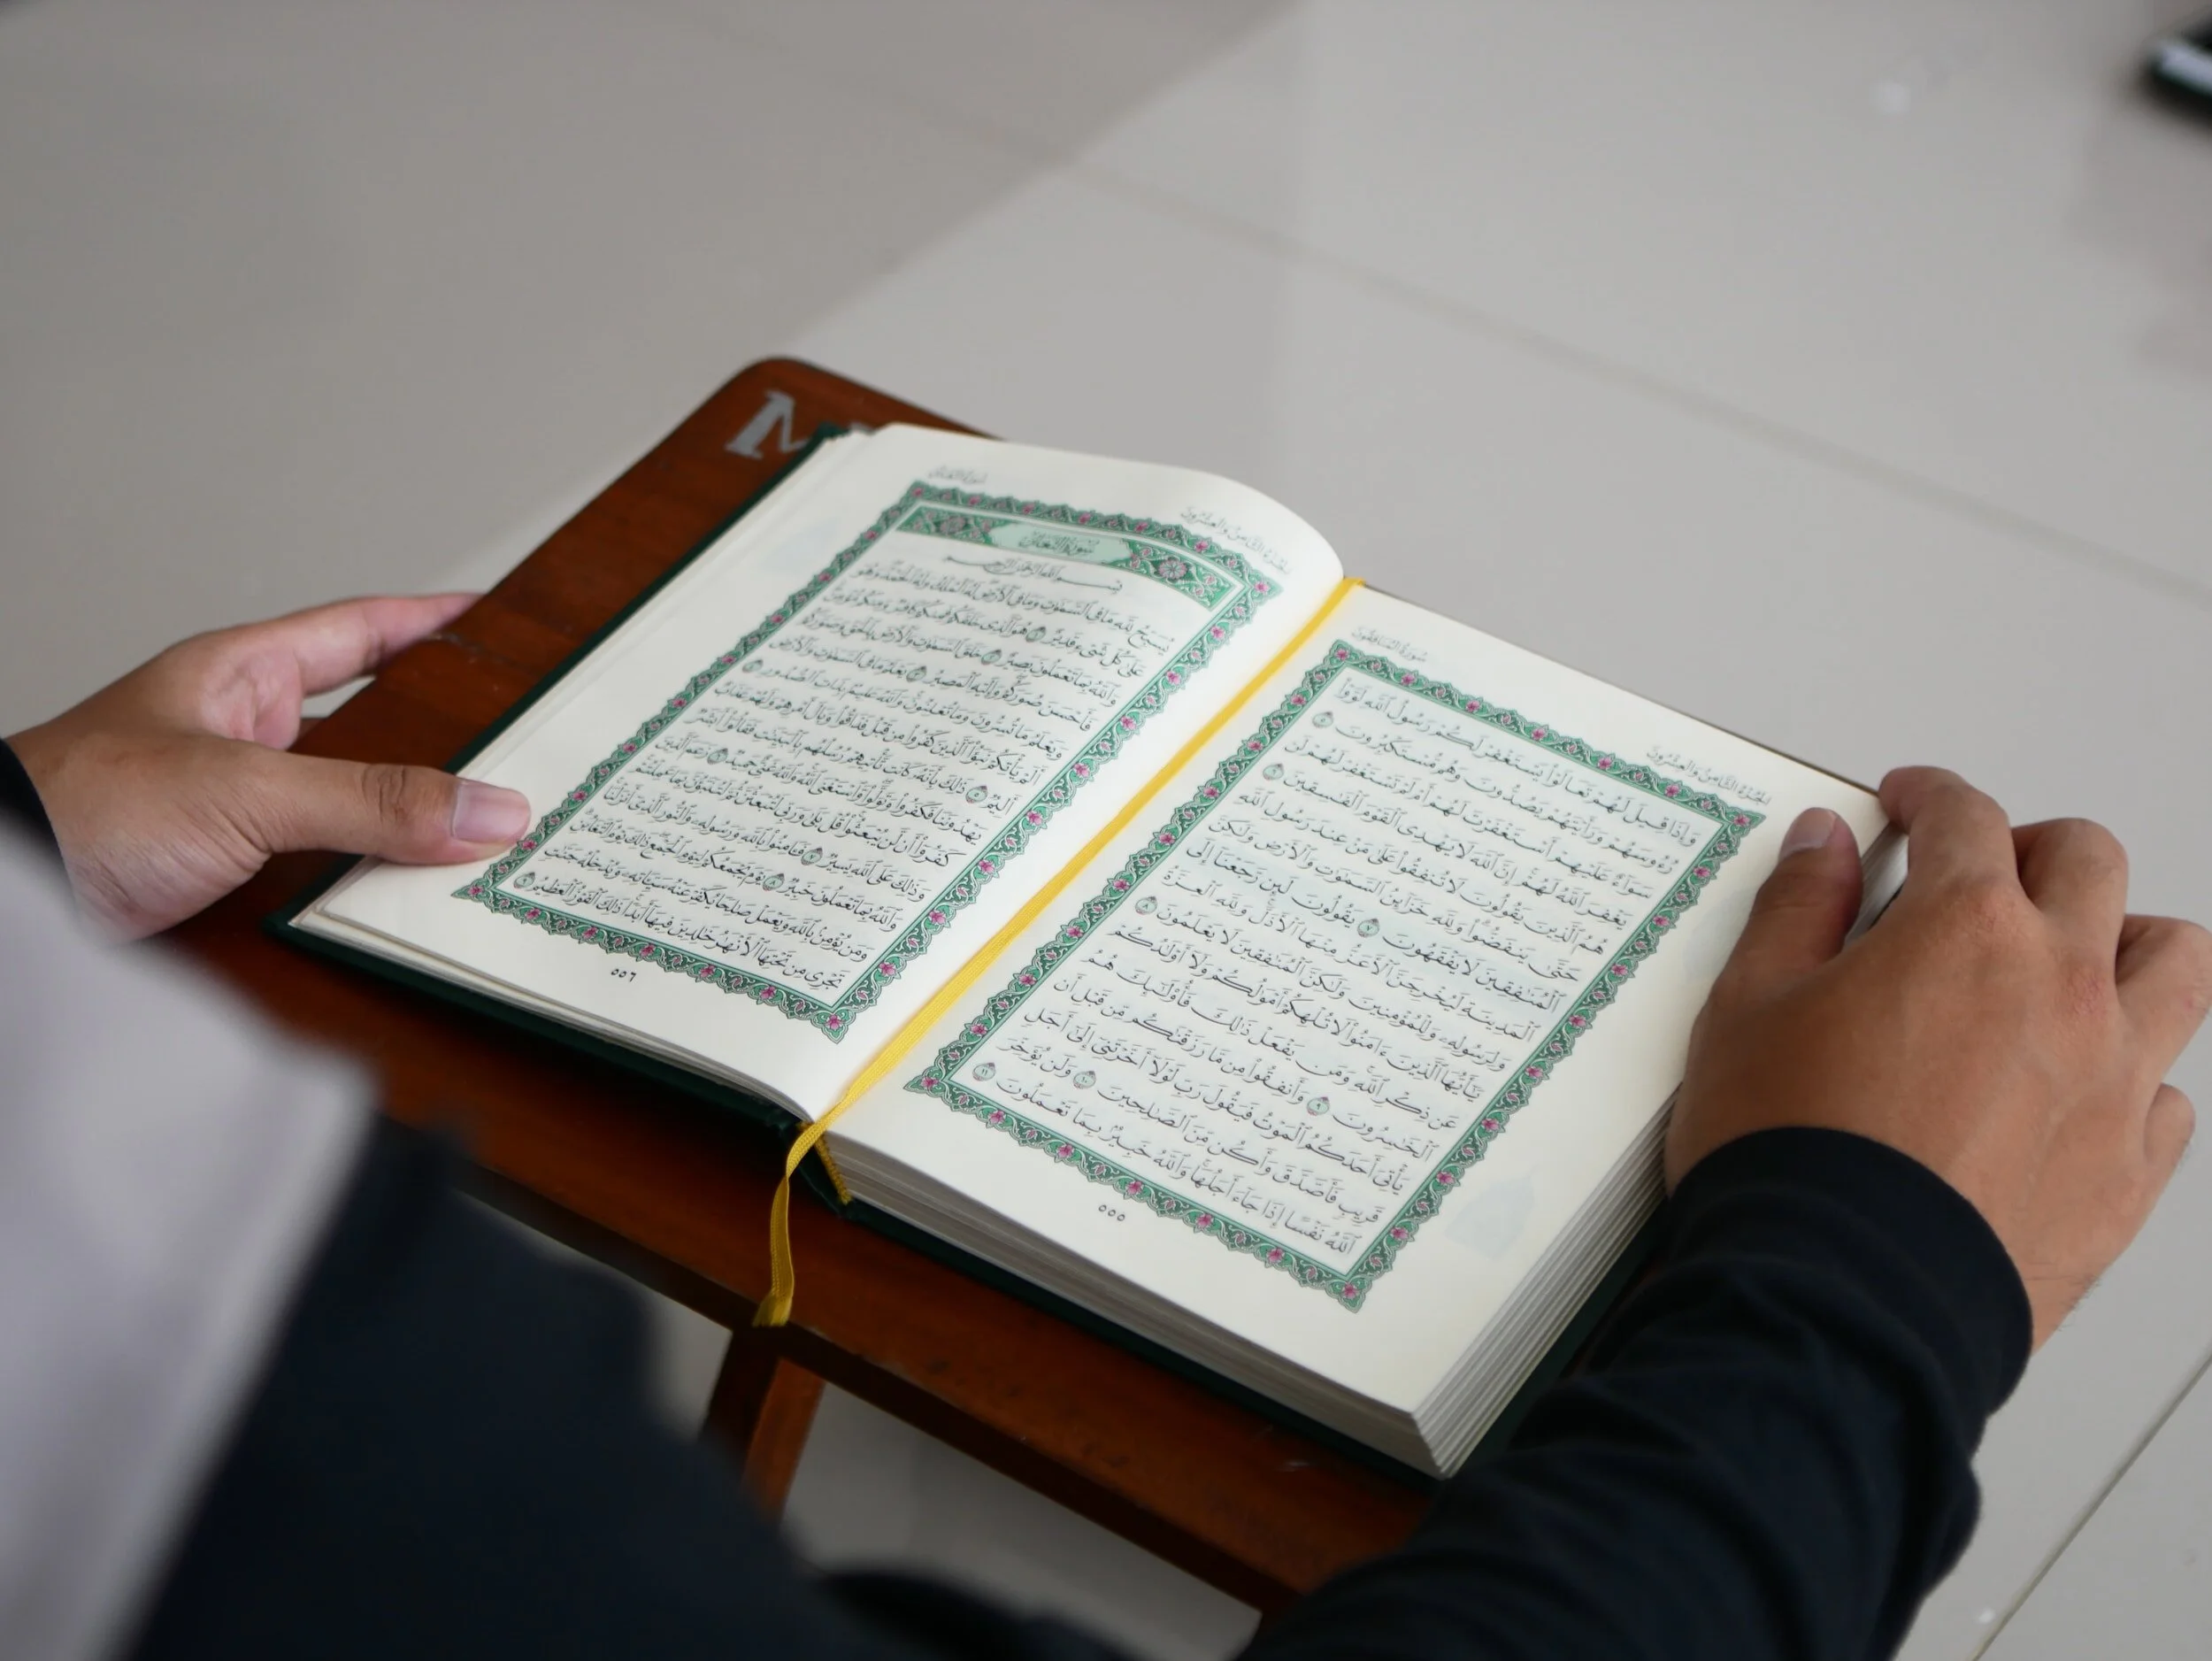 سُورَةُ المُنَافِقُونَ
الجُزْءُ الثَّامِنُ وَالعِشْرُونَ
وَإِذَا قِيلَ لَهُمْ تَعَالَوْا۟ يَسْتَغْفِرْ لَكُمْ رَسُولُ ٱللَّهِ لَوَّوْا۟
رُءُوسَهُمْ وَرَأَيْتَهُمْ يَصُدُّونَ وَهُم مُّسْتَكْبِرُونَ ٥
سَوَآءٌ عَلَيْهِمْ أَسْتَغْفَرْتَ لَهُمْ أَمْ لَمْ تَسْتَغْفِرْ لَهُمْ لَن
يَغْفِرَ ٱللَّهُ لَهُمْ إِنَّ ٱللَّهَ لَا يَهْدِى ٱلْقَوْمَ ٱلْفَـٰسِقِينَ ٦
هُمُ ٱلَّذِينَ يَقُولُونَ لَا تُنفِقُوا۟ عَلَىٰ مَنْ عِندَ رَسُولِ ٱللَّهِ
حَتَّىٰ يَنفَضُّوا۟ وَلِلَّهِ خَزَآئِنُ ٱلسَّمَـٰوَٰتِ وَٱلْأَرْضِ وَلَـٰكِنَّ
ٱلْمُنَـٰفِقِينَ لَا يَفْقَهُونَ ٧ يَقُولُونَ لَئِن رَّجَعْنَآ إِلَى
ٱلْمَدِينَةِ لَيُخْرِجَنَّ ٱلْأَعَزُّ مِنْهَا ٱلْأَذَلَّ وَلِلَّهِ ٱلْعِزَّةُ
وَلِرَسُولِهِۦ وَلِلْمُؤْمِنِينَ وَلَـٰكِنَّ ٱلْمُنَـٰفِقِينَ لَا يَعْلَمُونَ ٨
يَـٰٓأَيُّهَا ٱلَّذِينَ ءَامَنُوا۟ لَا تُلْهِكُمْ أَمْوَٰلُكُمْ وَلَآ أَوْلَـٰدُكُمْ
عَن ذِكْرِ ٱللَّهِ وَمَن يَفْعَلْ ذَٰلِكَ فَأُو۟لَـٰٓئِكَ هُمُ
ٱلْخَـٰسِرُونَ ٩ وَأَنفِقُوا۟ مِن مَّا رَزَقْنَـٰكُم مِّن قَبْلِ أَن
يَأْتِىَ أَحَدَكُمُ ٱلْمَوْتُ فَيَقُولَ رَبِّ لَوْلَآ أَخَّرْتَنِىٓ إِلَىٰٓ أَجَلٍ
قَرِيبٍ فَأَصَّدَّقَ وَأَكُن مِّنَ ٱلصَّـٰلِحِينَ ١٠ وَلَن يُؤَخِّرَ
ٱللَّهُ نَفْسًا إِذَا جَآءَ أَجَلُهَا وَٱللَّهُ خَبِيرٌۢ بِمَا تَعْمَلُونَ ١١
٥٥٥
سُورَةُ التَّغَابُنِ
الجُزْءُ الثَّامِنُ وَالعِشْرُونَ
سُورَةُ التَّغَابُنِ
بِسْمِ ٱللَّهِ ٱلرَّحْمَـٰنِ ٱلرَّحِيمِ
يُسَبِّحُ لِلَّهِ مَا فِى ٱلسَّمَـٰوَٰتِ وَمَا فِى ٱلْأَرْضِ لَهُ ٱلْمُلْكُ وَلَهُ ٱلْحَمْدُ وَهُوَ
عَلَىٰ كُلِّ شَىْءٍ قَدِيرٌ ١ هُوَ ٱلَّذِى خَلَقَكُمْ فَمِنكُمْ كَافِرٌ وَمِنكُم مُّؤْمِنٌ
وَٱللَّهُ بِمَا تَعْمَلُونَ بَصِيرٌ ٢ خَلَقَ ٱلسَّمَـٰوَٰتِ وَٱلْأَرْضَ بِٱلْحَقِّ وَصَوَّرَكُمْ
فَأَحْسَنَ صُوَرَكُمْ وَإِلَيْهِ ٱلْمَصِيرُ ٣ يَعْلَمُ مَا فِى ٱلسَّمَـٰوَٰتِ وَٱلْأَرْضِ
وَيَعْلَمُ مَا تُسِرُّونَ وَمَا تُعْلِنُونَ وَٱللَّهُ عَلِيمٌۢ بِذَاتِ ٱلصُّدُورِ ٤
أَلَمْ يَأْتِكُمْ نَبَؤُا۟ ٱلَّذِينَ كَفَرُوا۟ مِن قَبْلُ فَذَاقُوا۟ وَبَالَ أَمْرِهِمْ وَلَهُمْ عَذَابٌ
أَلِيمٌ ٥ ذَٰلِكَ بِأَنَّهُۥ كَانَت تَّأْتِيهِمْ رُسُلُهُم بِٱلْبَيِّنَـٰتِ فَقَالُوٓا۟ أَبَشَرٌ
يَهْدُونَنَا فَكَفَرُوا۟ وَتَوَلَّوا۟ وَّٱسْتَغْنَى ٱللَّهُ وَٱللَّهُ غَنِىٌّ حَمِيدٌ ٦ زَعَمَ ٱلَّذِينَ
كَفَرُوٓا۟ أَن لَّن يُبْعَثُوا۟ قُلْ بَلَىٰ وَرَبِّى لَتُبْعَثُنَّ ثُمَّ لَتُنَبَّؤُنَّ بِمَا عَمِلْتُمْ
وَذَٰلِكَ عَلَى ٱللَّهِ يَسِيرٌ ٧ فَـَٔامِنُوا۟ بِٱللَّهِ وَرَسُولِهِۦ وَٱلنُّورِ ٱلَّذِىٓ أَنزَلْنَا
وَٱللَّهُ بِمَا تَعْمَلُونَ خَبِيرٌ ٨ يَوْمَ يَجْمَعُكُمْ لِيَوْمِ ٱلْجَمْعِ ذَٰلِكَ يَوْمُ ٱلتَّغَابُنِ
وَمَن يُؤْمِنۢ بِٱللَّهِ وَيَعْمَلْ صَـٰلِحًا يُكَفِّرْ عَنْهُ سَيِّـَٔاتِهِۦ وَيُدْخِلْهُ جَنَّـٰتٍ
تَجْرِى مِن تَحْتِهَا ٱلْأَنْهَـٰرُ خَـٰلِدِينَ فِيهَآ أَبَدًا ذَٰلِكَ ٱلْفَوْزُ ٱلْعَظِيمُ ٩
٥٥٦
M